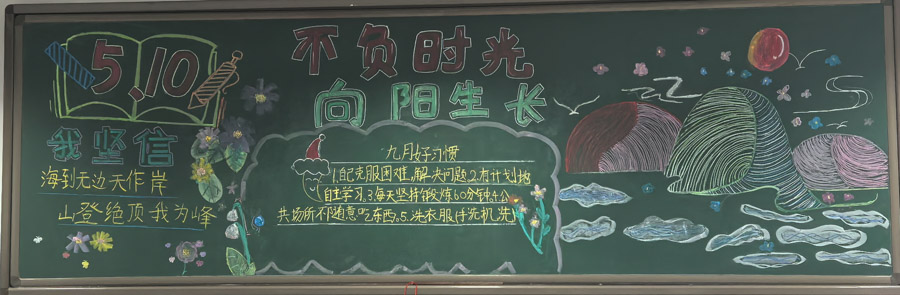 5.10
我坚信
海到无边天作岸
山登绝顶我为峰
不负时光
向阳生长
九月好习惯
1.自己克服困难,解决问题2.有计划地
自主学习,3.每天坚持锻炼60分钟4.公
共场所不随意吃东西,5.洗衣服(手洗机洗)